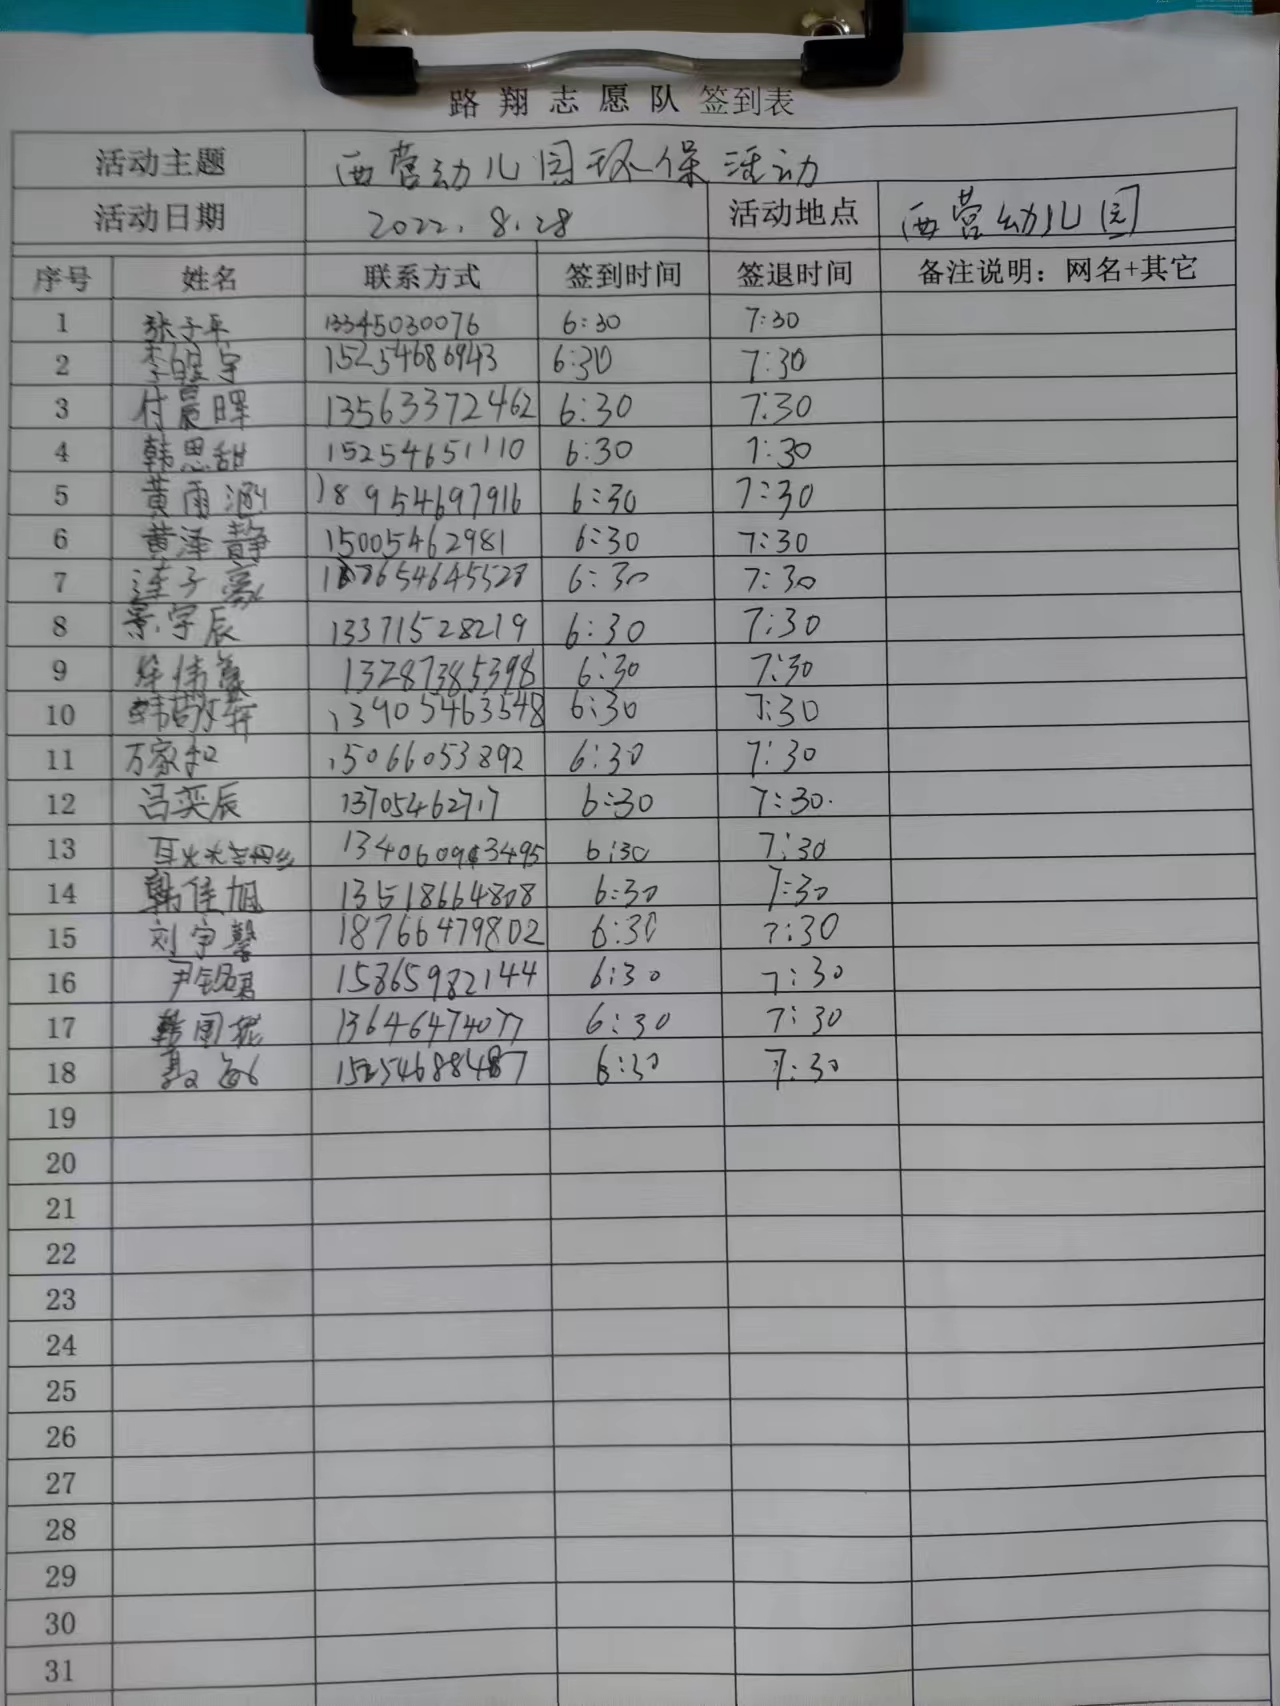 路翔志愿队 签到表
活动主题 西营幼儿园环保活动
活动日期 2022.8.28 活动地点 西营幼儿园
序号 姓名 联系方式 签到时间 签退时间 备注说明：网名+其它
1 张子平 13345030076 6:30 7:30
2 李 宇 15254686943 6:30 7:30
3 付晨晖 13563372462 6:30 7:30
4 韩思甜 15254651110 6:30 7:30
5 黄雨涵 18954697916 6:30 7:30
6 黄泽静 15005462981 6:30 7:30
7 子豪 6:30 7:30
8 景宇辰 13371528219 6:30 7:30
9 13287385398 6:30 7:30
10 韩敬 13905463548 6:30 7:30
11 万家和 15066053892 6:30 7:30
12 吕奕辰 13705462717 6:30 7:30.
13 6:30 7:30
14 韩佳旭 13518664808 6:30 7:30
15 刘宇馨 18766479802 6:30 7:30
16 尹铭君 15865982144 6:30 7:30
17 韩 13646474077 6:30 7:30
18 聂 敏 15254688487 6:30 7:30
19
20
21
22
23
24
25
26
27
28
29
30
31